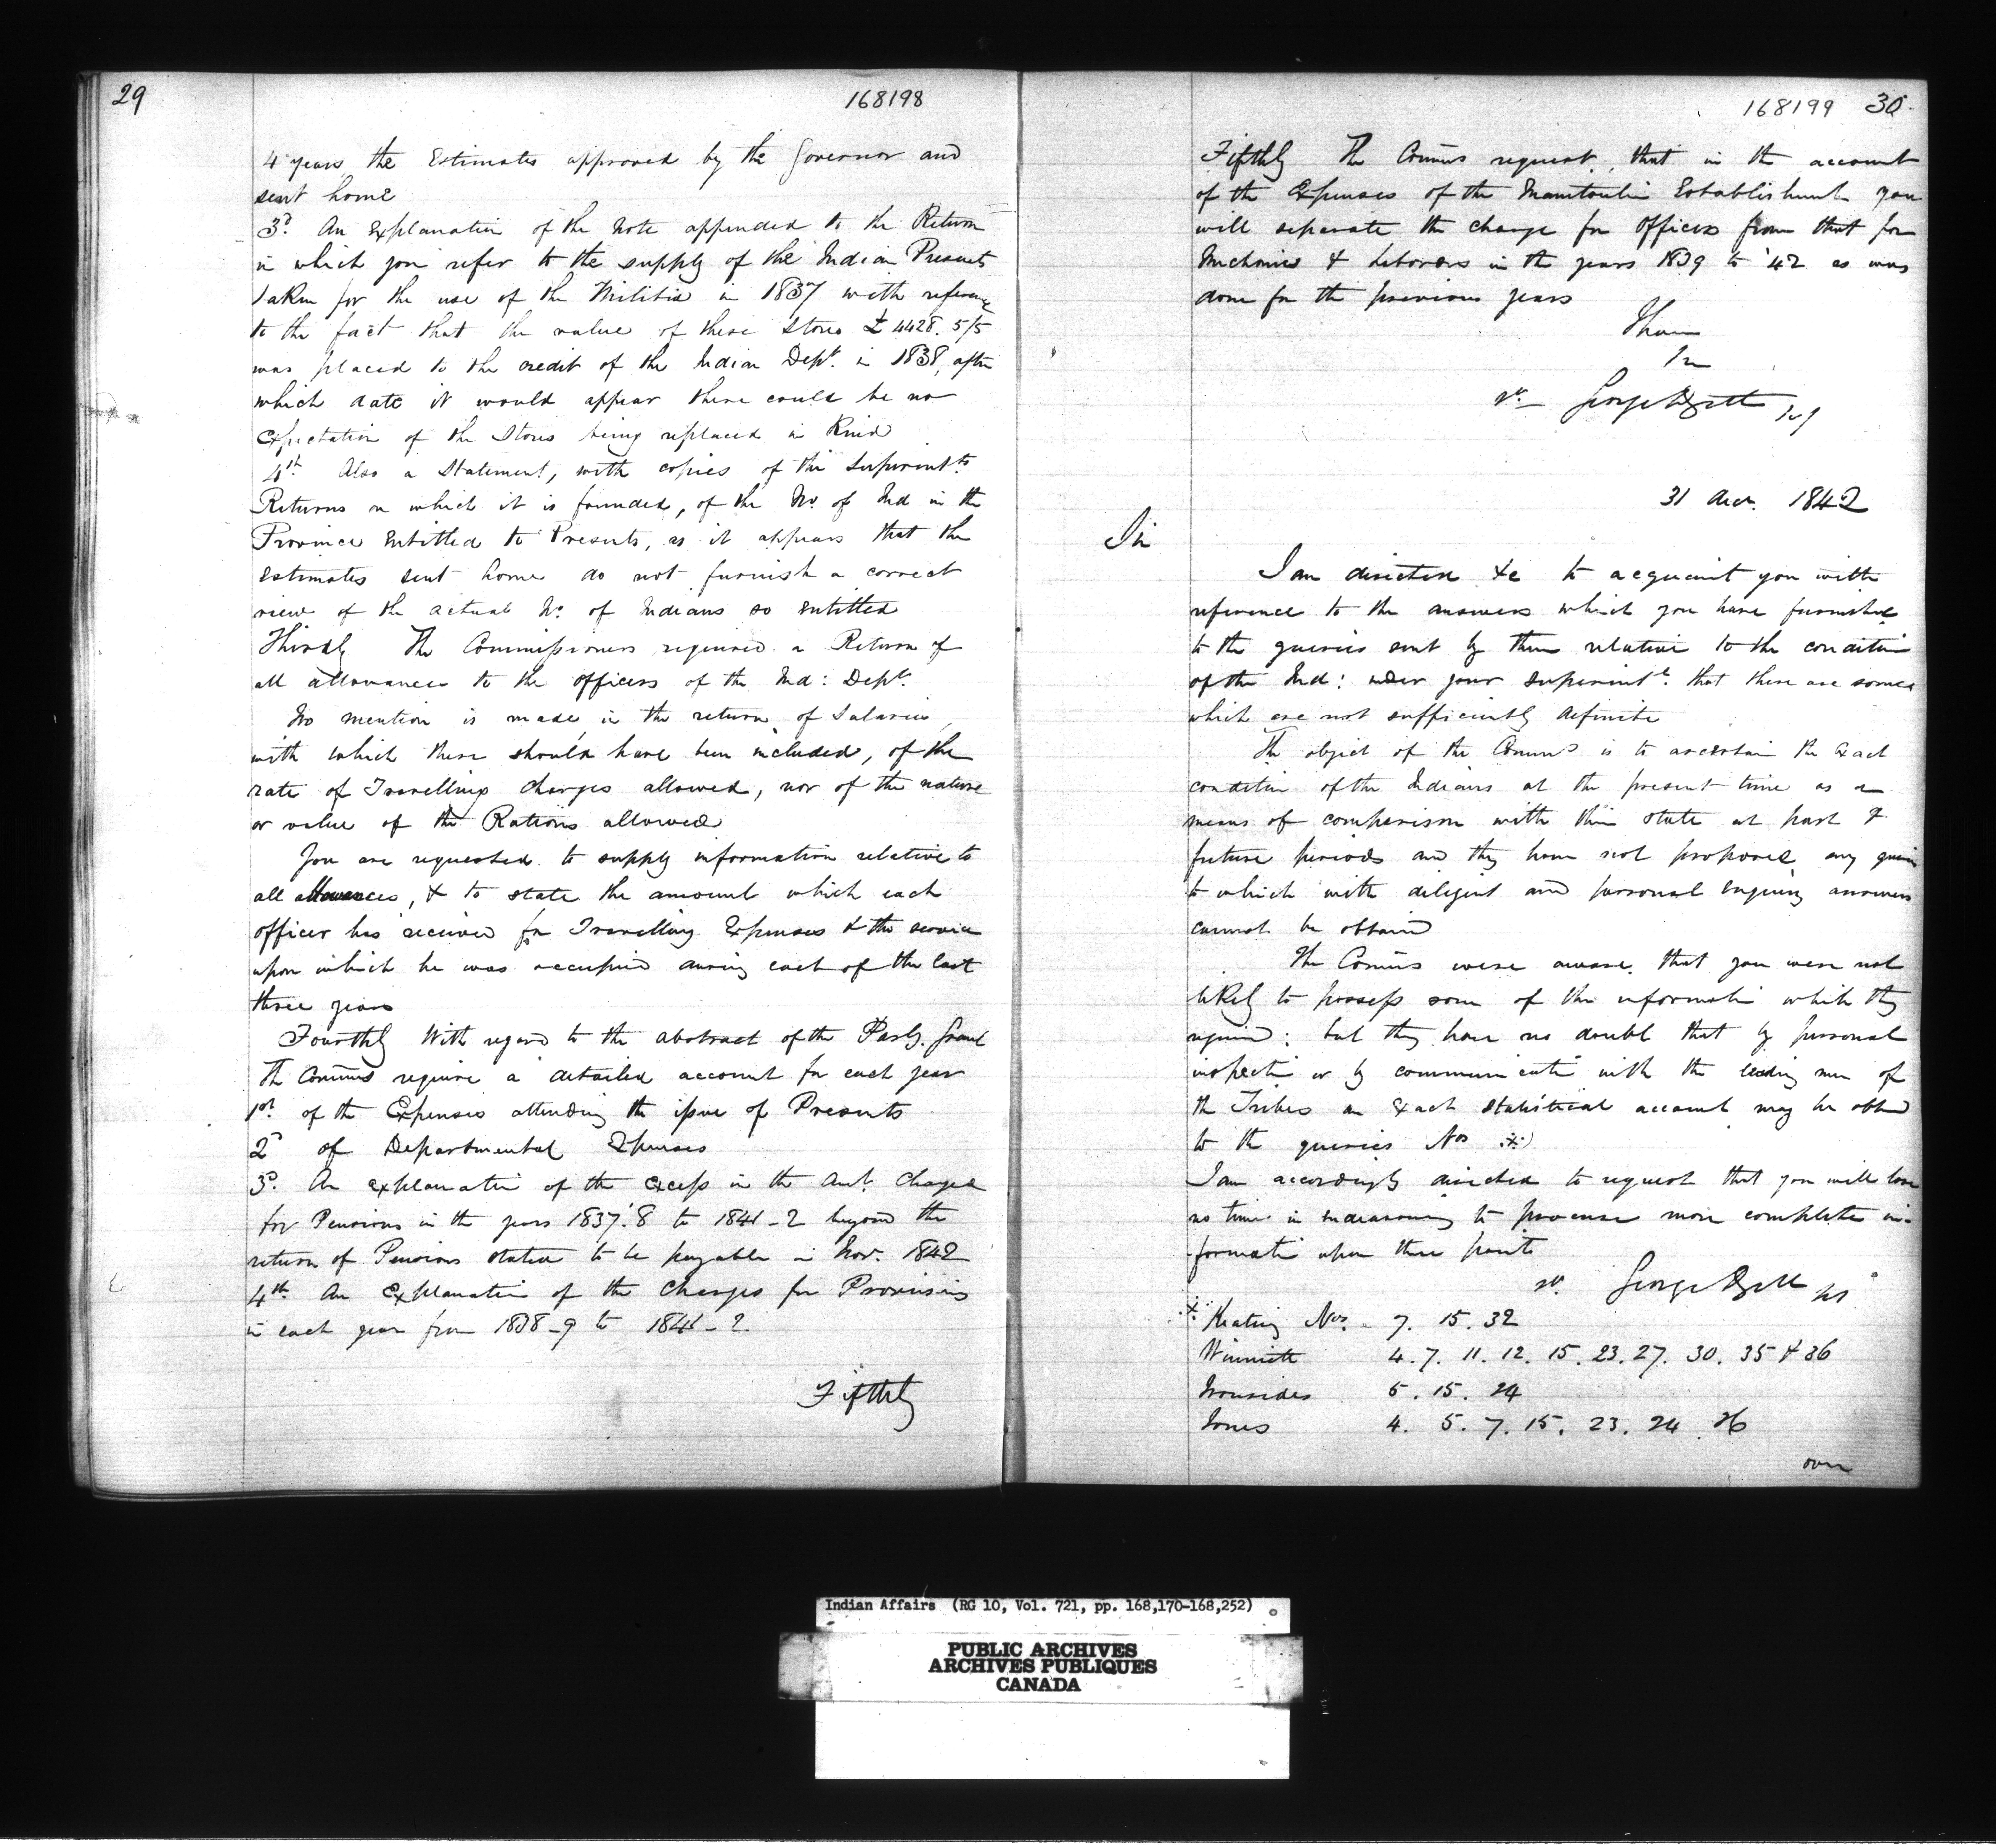 29
168198
4 years, the Estimates approved by the Governor and
sent home
3d. An Explanation of the Note appended to the Return
in which you refer to the supply of the Indian Presents
taken for the use of the Militia in 1837 with reference
to the fact that the value of these Stores £4428. 5/5
was placed to the credit of the Indian Dept. in 1838, after
which date it would appear there could be no
expectation of the Stores being replaced in Kind
4th. Also a Statement, with copies of the Superintts
Returns on which it is founded, of the No. of Ind in the
Province Entitled to Presents, as it appears that the
Estimates sent home do not furnish a correct
view of the actual No. of Indians so entitled
Thirdly The Commissioners required a Return of
all allowances to the officers of the Ind: Dept.
No mention is made in the return of Salaries,
with which these should have been included, of the
rate of Travelling charges allowed, nor of the nature
or value of the Rations allowed
You are requested to supply information relative to
all allowances, & to state the amount which each
officer has received for Travelling Expenses & the service
upon which he was occupied during each of the last
three years
Fourthly With regard to the abstract of the Parly. Grant
The Comms require a detailed account for each year
1st. of the Expenses attending the issue of Presents
2d of Departmental Expenses
3d. An explanation of the Excess in the Amt. charged
for Pensions in the years 1837.'8 to 1841-2 beyond the
return of Pensions stated to be payable in Nov. 1842
4th An Explanation of the Charges for Provisions
in each year from 1838-9 to 1841-2
Fifthly
168199 30
Fifthly The Comms request, that in the account
of the Expenses of the Manitoulin Establishment you
will separate the charge for Officers from that for
Mechanics & Laborers in the years 1839 to '42 as was
done for the previous years
I have
31 Decr. 1842
Sir
I am directed &c to acquaint you with
reference to the answers which you have furnished
to the queries sent by them relative to the condition
of the Ind: under your Superintce. that there are some
which are not sufficiently definite
The object of the Comms is to ascertain the exact
condition of the Indians at the present time as a
means of comparison with their state at past &
future periods and they have not proposed any queries
to which with diligent and personal enquiry answers
cannot be obtained
The Comms were aware that you were not
likely to possess some of the information which they
required: but they have no doubt that by personal
inspection or by communication with the leading men of
the Tribes an exact statistical account may be obtd
to the queries Nos *
I am accordingly directed to request that you will lose
no time in endeavouring to procure more complete in-
formation upon these points
* Keating Nos. - 7. 15. 32
Winniett 4. 7. 11. 12. 15. 23. 27. 30. 35 & 36
Ironsides 5. 15. 24
Jones 4. 5. 7. 15. 23. 24. 26
over
Indian Affairs (RG 10, Vol. 721, pp. 168,170-168,252)
PUBLIC ARCHIVES
ARCHIVES PUBLIQUES
CANADA